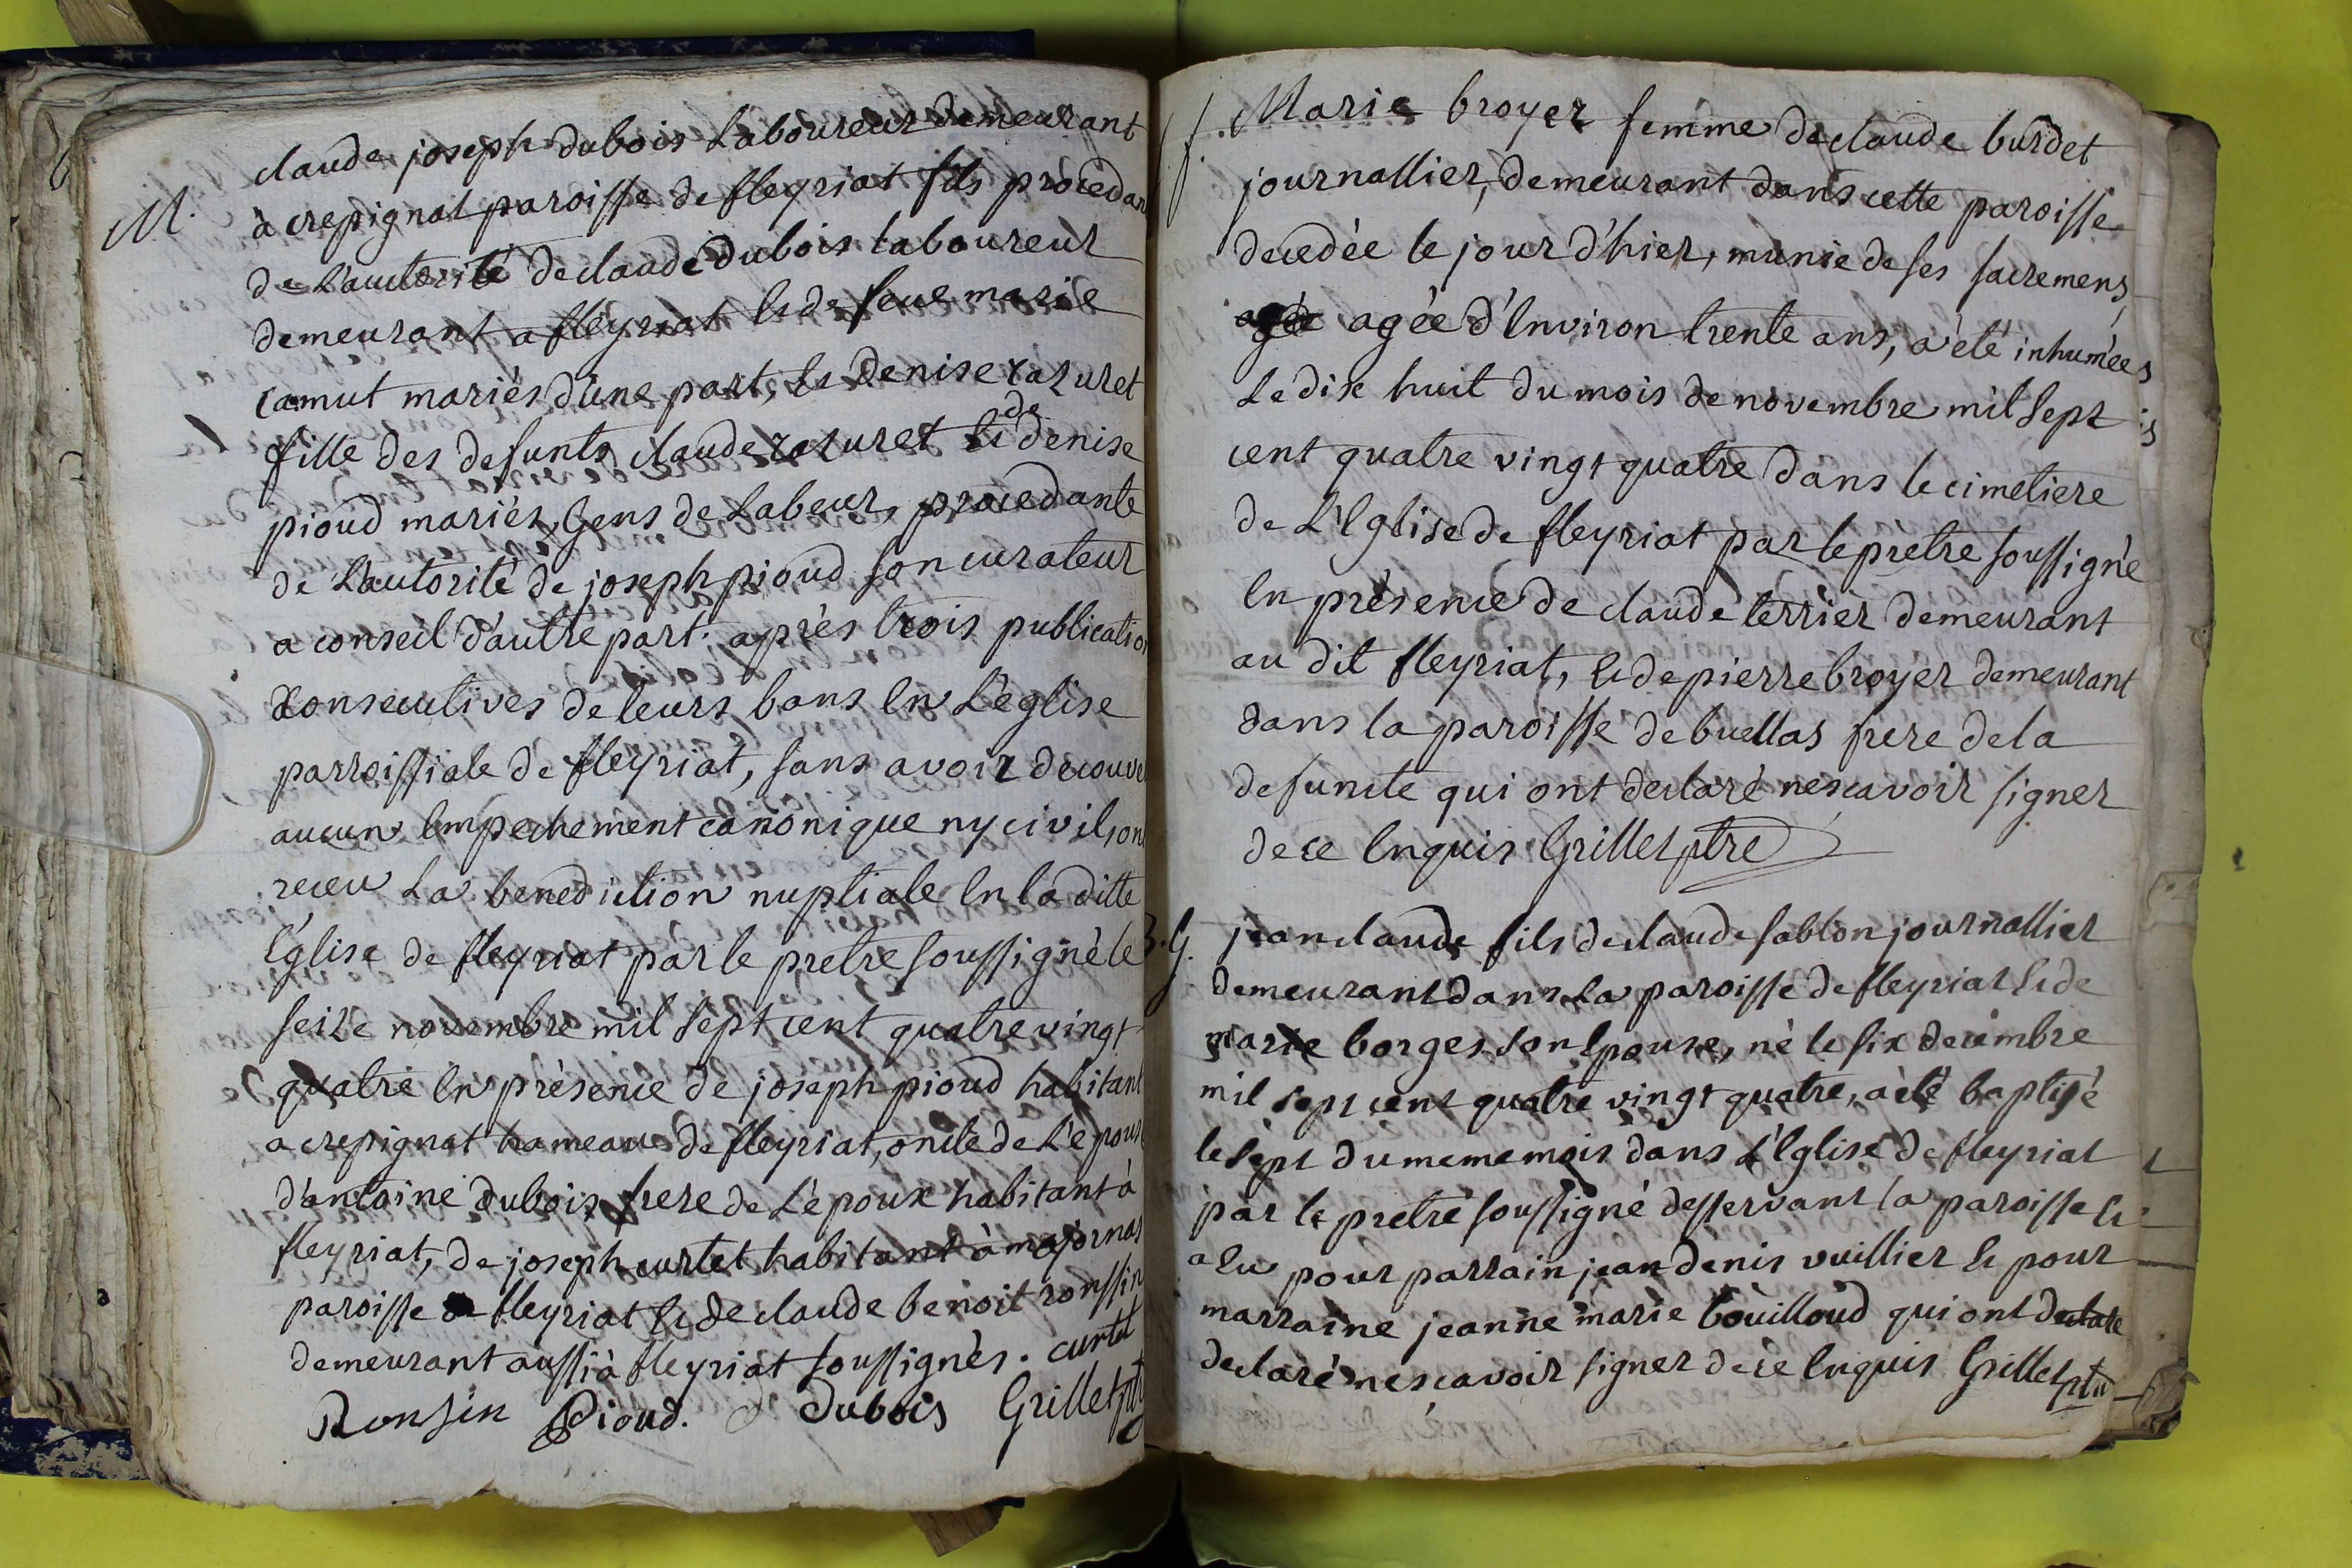 M.
claude joseph dubois Laboureur demeurant
à crepignat paroisse de fleyriat fils procedan
de L'autorité de claude dubois laboureur
demeurant a fleyriat & de feue marie
camut mariés d'une part, & denise razuret
fille des defunts claude razuret & de denise
pioud mariés, Gens de Labeur, procedante
de L'autorité de joseph pioud son curateur
a conseil d'autre part. après trois publication
consecutives de leurs bans En L'eglise
parroissiale de fleyriat, sans avoir decouve
aucun Empechement canonique ny civil, ont
receu La benediction nuptiale En la ditte
Eglise de fleyriat par le pretre soussigné le
seize novembre mil sept cent quatre vingt
quatre En présence de joseph pioud habitant
a crepignat hameau de fleyriat, oncle de L'epouse
d'antoine dubois frere de L'époux habitant à
fleyriat, de joseph curtet habitant à majornas
paroisse de fleyriat & de claude benoit ronssin
demeurant aussi à fleyriat soussignés. curtet
Ronsin Pioud. d dubois Grillet ptre
f. Marie broyer femme de claude burdet
journallier, demeurant dans cette paroisse
decedée le jour d'hier, munie de ses sacremens,
agée agée d'Environ trente ans, a été inhumée
Le dix huit du mois de novembre mil sept
cent quatre vingt quatre dans le cimetiere
de L'Eglise de fleyriat par le prêtre soussigné
En présence de claude terrier demeurant
au dit fleyriat, & de pierre broyer demeurant
dans la paroisse de buellas frere de la
defuncte qui ont declaré ne scavoir signer
de ce Enquis Grillet ptre
B.G. jean claude fils de claude sablon journallier
demeurant dans La paroisse de fleyriat & de
marie borges son Epouse, né le six decembre
mil sept cent quatre vingt quatre, a été baptisé
le sept du meme mois dans L'Eglise de fleyriat
par le pretre soussigné desservant la paroisse &
a Eu pour parrain jean denis vuillier & pour
marraine jeanne marie bouilloud qui ont declare
declaré ne scavoir signer de ce Enquis Grillet ptre